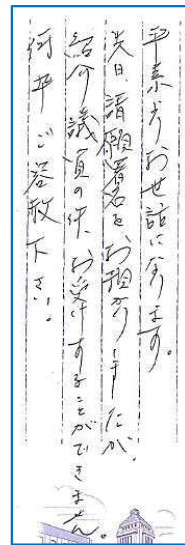 平素よりお世話になります。
先日、請願署名をお預かりしましたが、
紹介議員の件、お受けすることができません。
何卒ご容赦下さい。